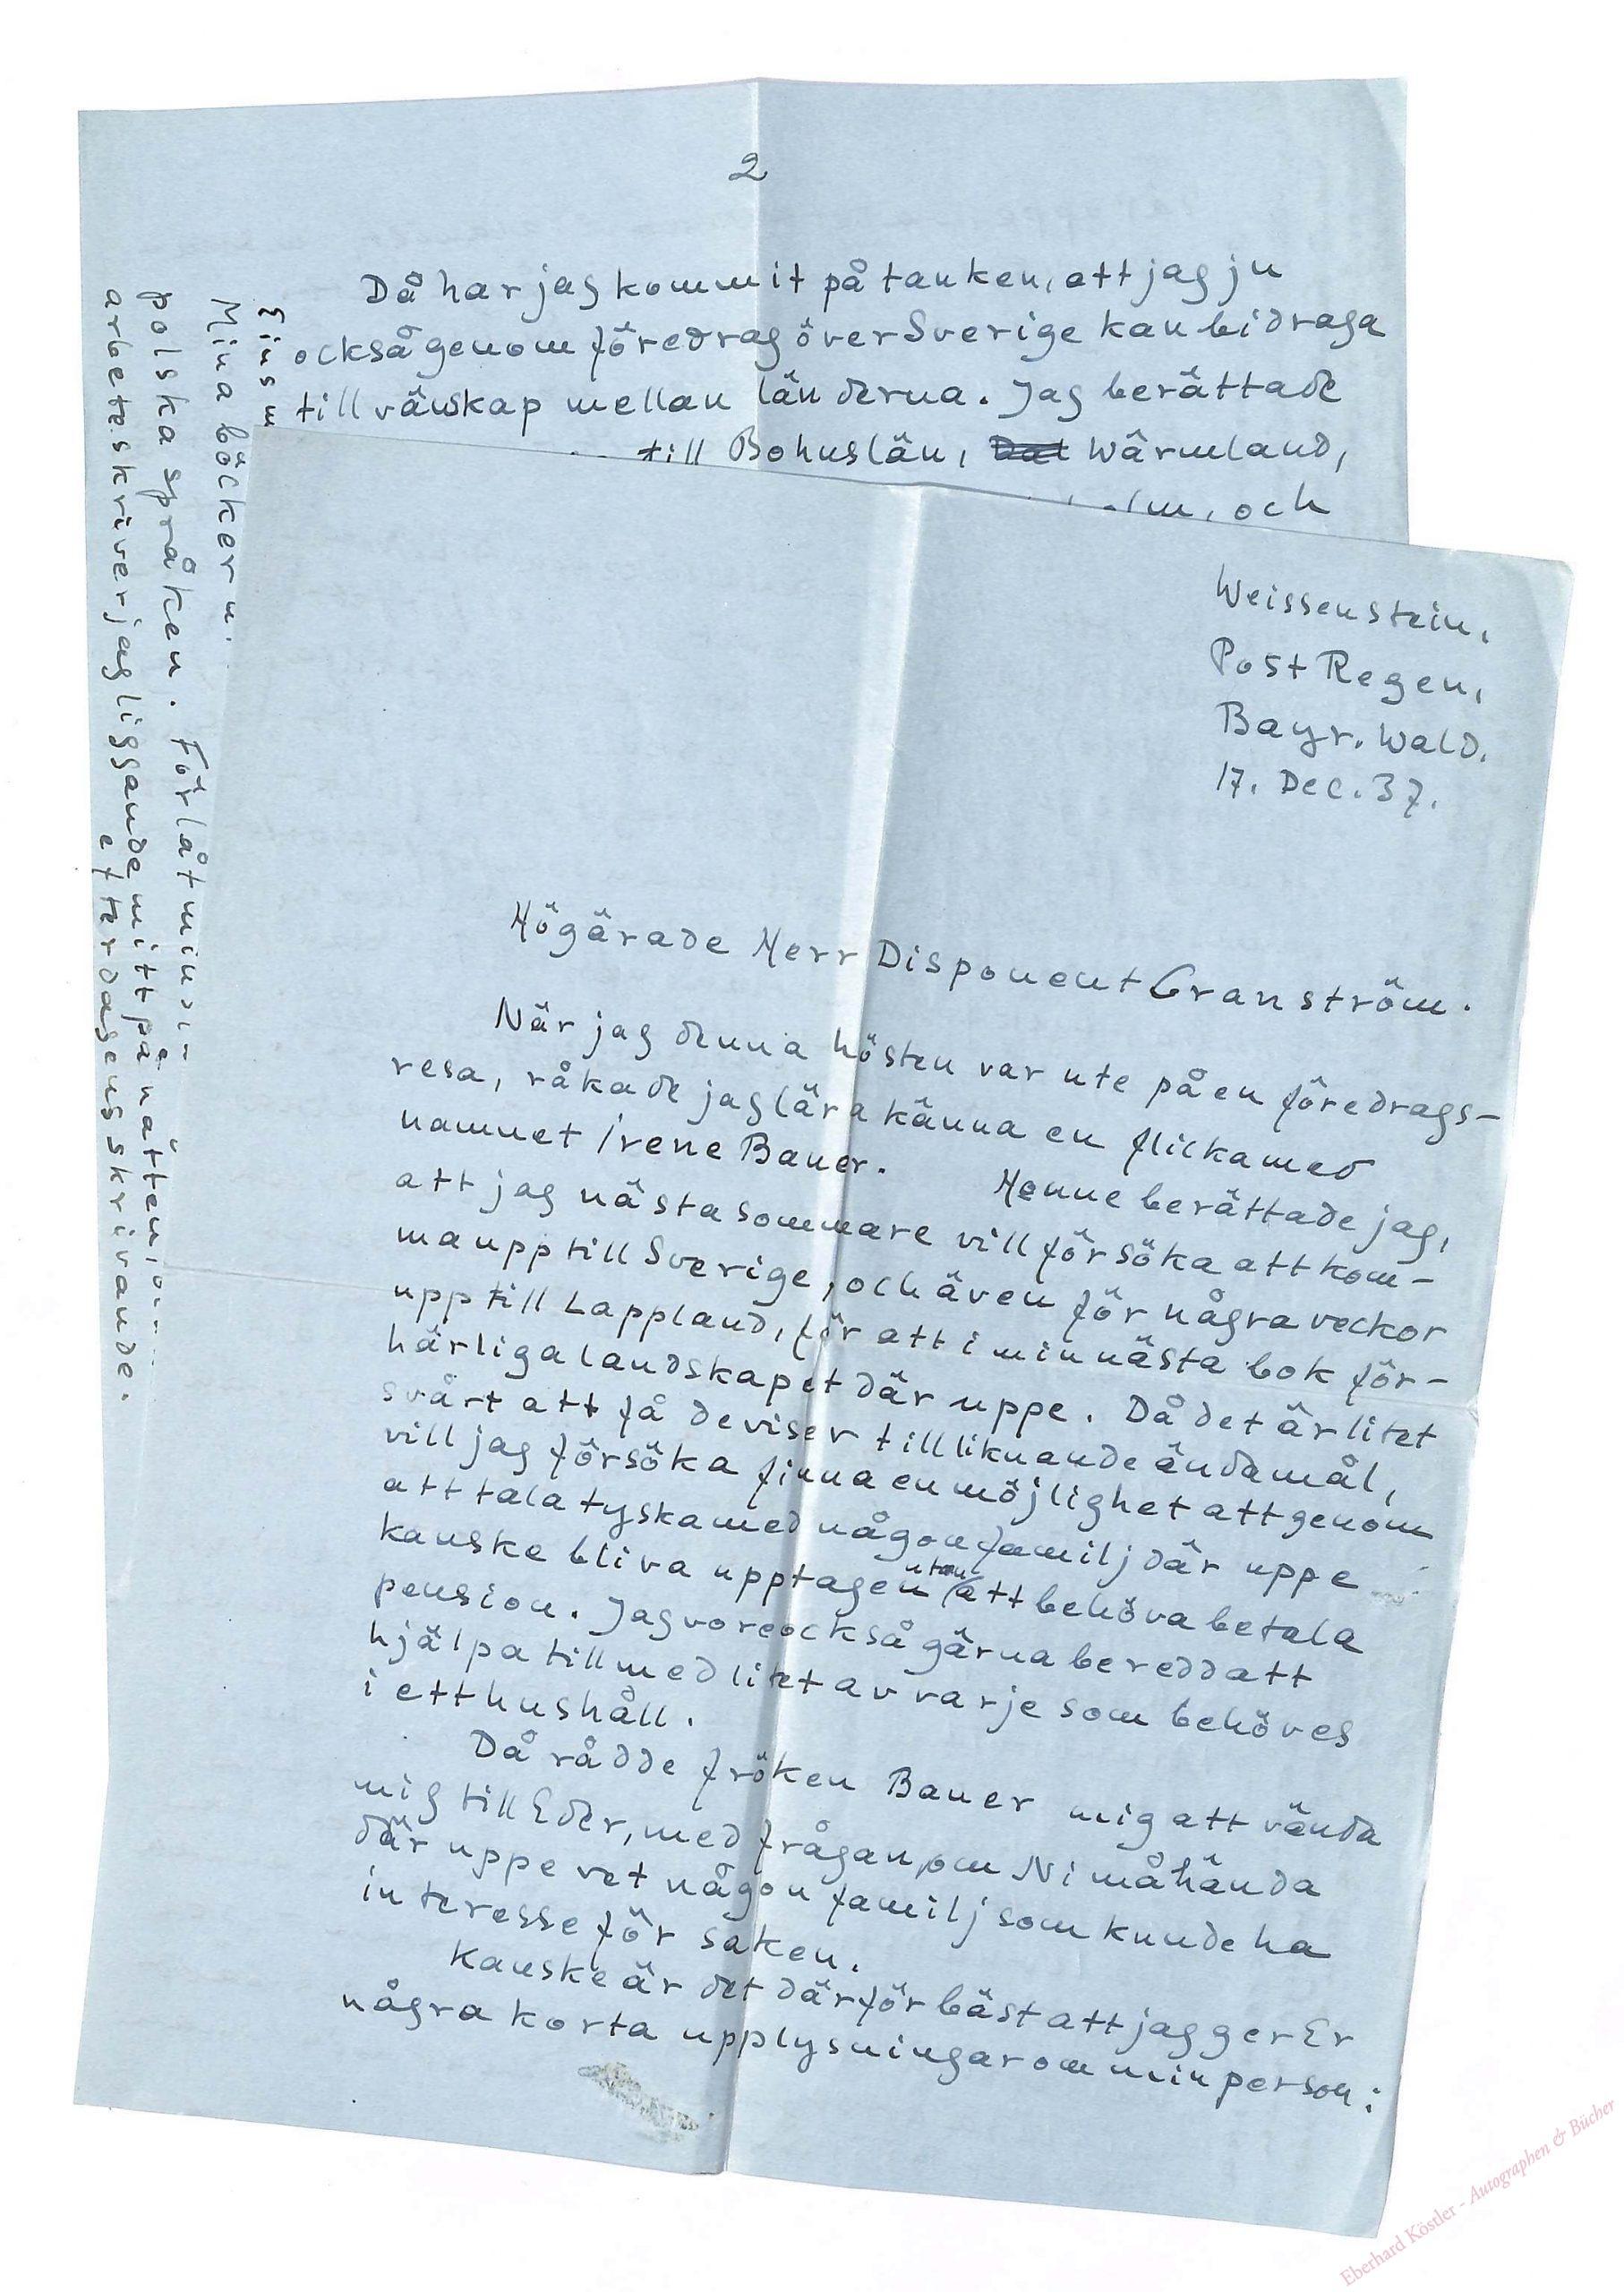 2
Då har jag kommit på tanken, att jag ju
också genom föredrag över Sverige kan bidraga
till vänskap mellan länderna. Jag berättade
till Bohuslän, Wärmland,
och
Mina böcker
polska språken. Förlåt min
arbete skriver jag liggande mitt på natten,
efter dagens skrivande.
Weissenstein,
Post Regen,
Bayr. Wald.
17. Dec. 37.
Högärade Herr Disponent Granström.
När jag denna hösten var ute på en föredrags-
resa, råkade jag lära känna en flicka med
namnet Irene Bauer. Henne berättade jag,
att jag nästa sommare vill försöka att kom-
ma upp till Sverige, och även för några veckor
upp till Lappland, för att i min nästa bok för-
härliga landskapet där uppe. Då det är litet
svårt att få deviser till liknande ändamål,
vill jag försöka finna en möjlighet att genom
att tala tyska med någon familj där uppe
kanske bliva upptagen utan att behöva betala
pension. Jag vore också gärna beredd att
hjälpa till med litet av varje som behöves
i ett hushåll.
Då rådde fröken Bauer mig att vända
mig till Eder, med frågan, om Ni måhända
där uppe vet någon familj som kunde ha
interesse för saken.
Kanske är det därför bäst att jag ger Er
några korta upplysningar om min person:
Eberhard Köstler - Autographen & Bücher